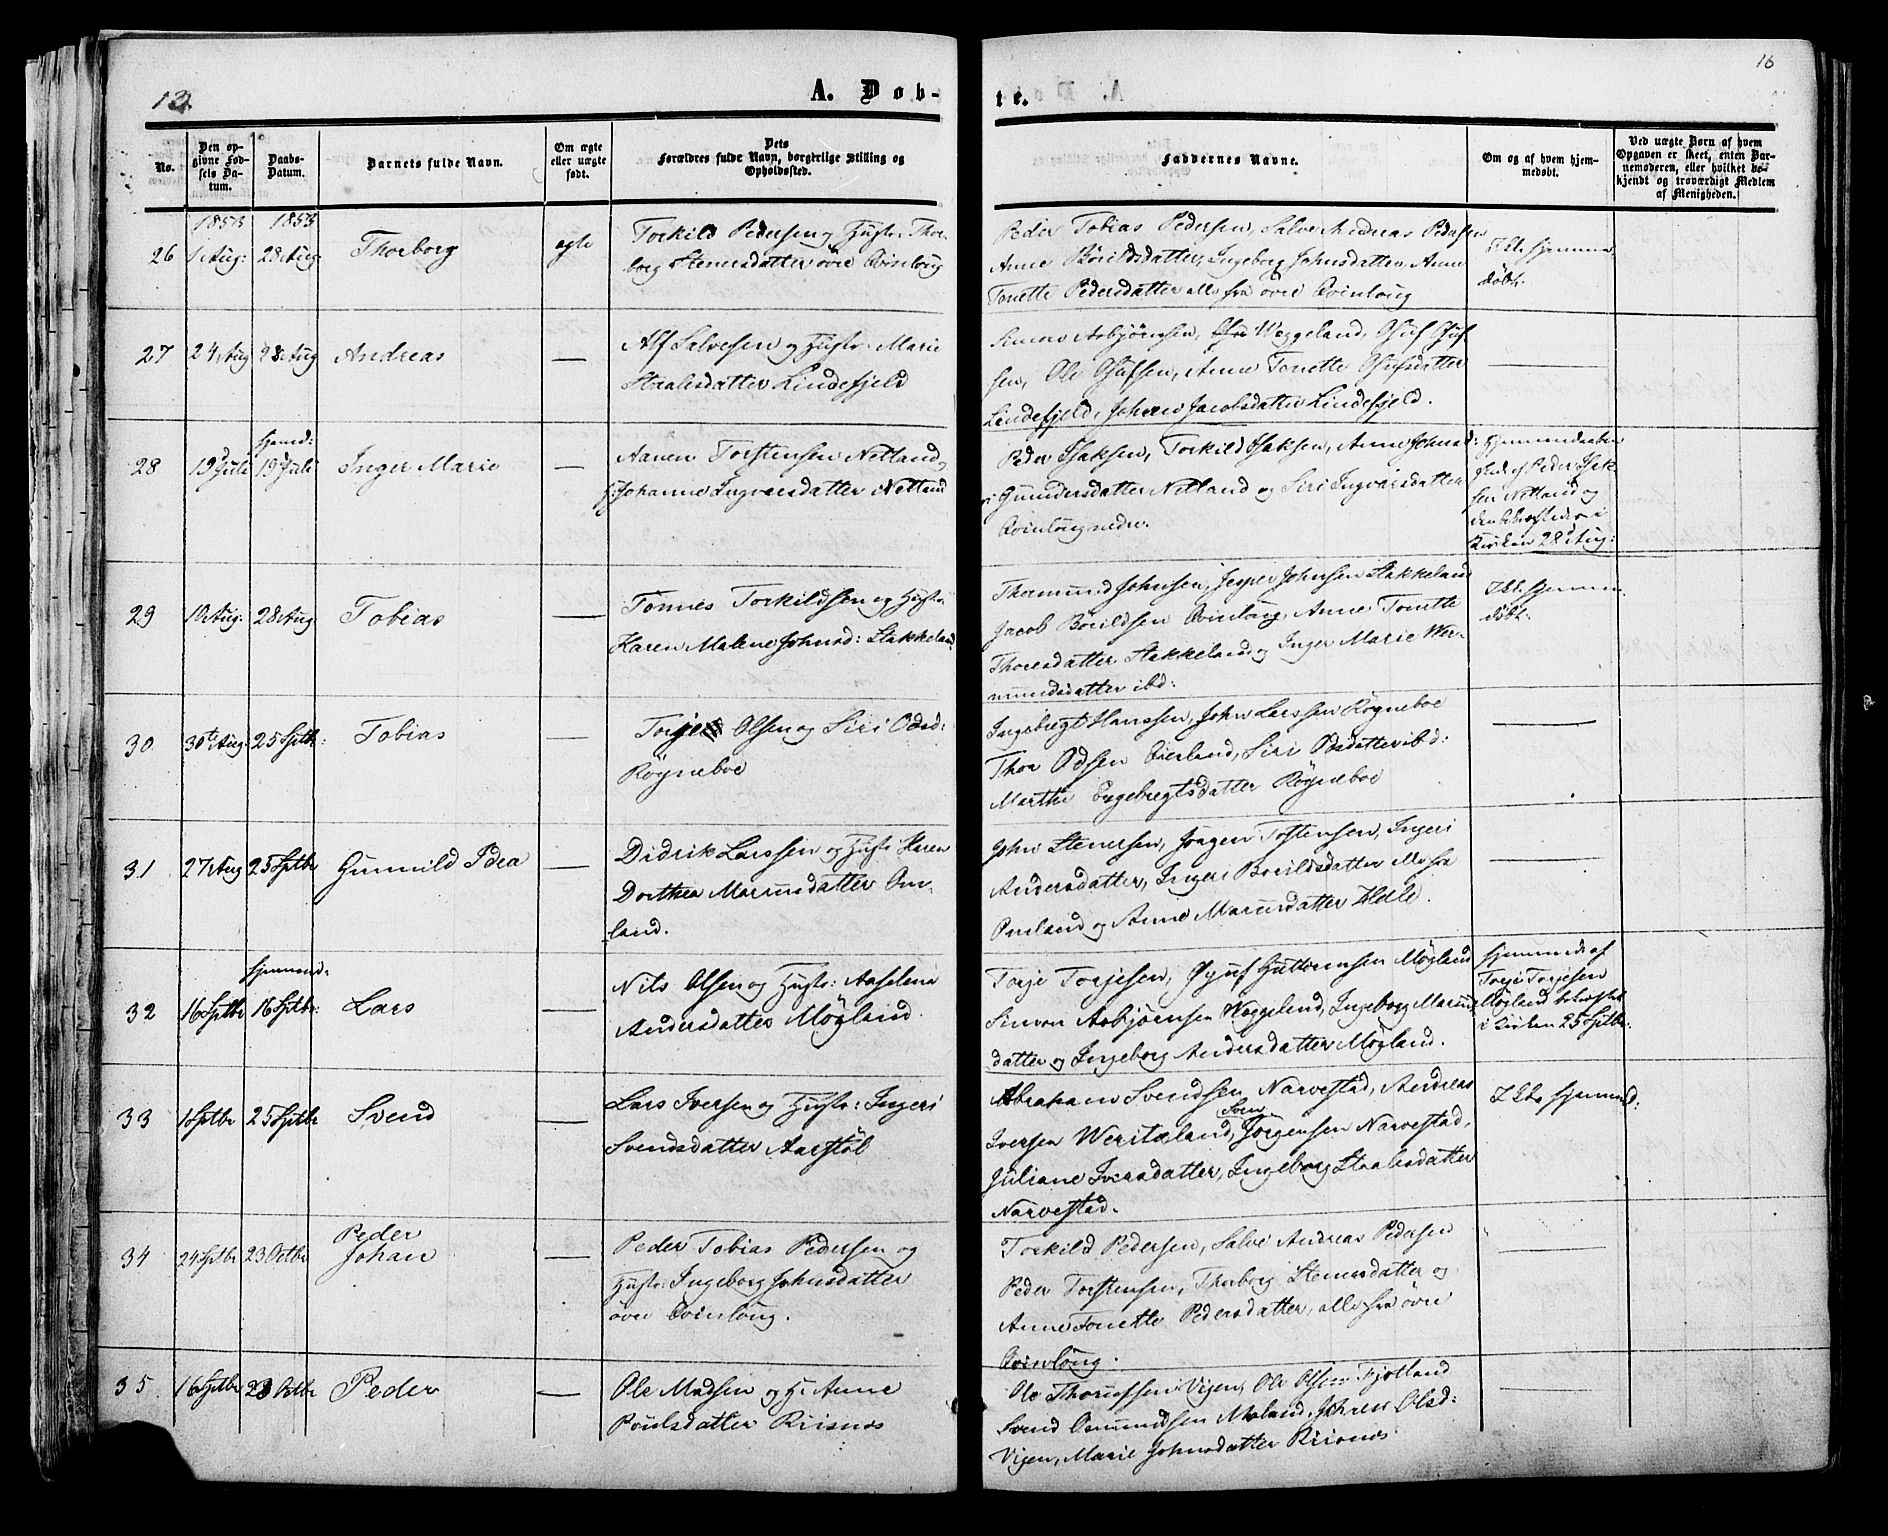 13.
A. Døb-
te.
16
No.
Den op-
givne Fød-
sels Da-
tum.
Daabs-
Datum.
Barnets fulde Navn.
Om ægte
eller uægte
født.
Dets
Forældres fulde Navn, borgerlige Stilling og
Opholdssted.
Faddernes Navne.
Om og af hvem hjem-
medøbt.
Ved uægte Børn af hvem
Opgaven er skeet, enten Bar-
nemoderen, eller hvilket be-
kjendt og troværdigt Medlem
af Menigheden.
1853 1853
26 1 Aug: 28 Aug Thorborg egte
Torkild Pedersen og Hustr: Thor-
borg Stenersdatter øvre Qvinlaug
Peder Tobias Pedersen, Salve Andreas Pedersen
Anne Börildsdatter, Ingeborg Johnsdatter, Anne
Tonette Pedersdatter alle fra øvre Qvinlaug
Ikke hjemme
döbt.
27 24 Aug 28 Aug Andreas —
Alf Salvesen og Hustr: Marie
Staalesdatter Lindefjeld
Simon Asbjørnsen, Weggeland, Osuf Osuf-
sen, Ole Osufsen, Anne Tonette Osufsdatter
Lindefjeld, Johanne Jacobsdatter Lindefjeld.
—
28 19 Juli hjemd: 19 Juli Inger Marie —
Aanen Torstensen Netland
Johanne Ingvarsdatter Netland
Peder Isaksen, Torkild Isaksen, Anne
Gundersdatter Netland og Siri Ingvarsdatter
Qvinlaug nedre.
Hjemmedaaben
af Peder Isak-
sen Netland og
i
Kirken 28 Aug:
29 10 Aug: 28 Aug Tobias —
Tønnes Torkildsen og Hustr:
Karen Malene Johnsd: Stakkeland
Thormund Johnsen, Jesper Johnsen Stakkeland
Jacob Börildsen Qvinlaug, Anne Tonette
Thoresdatter Stakkeland og Inger Marie Wer-
mundsdatter ibd:
Ikke hjemme-
döbt.
30 30te Aug: 25 Sptbr: Tobias
Torje Olsen og Siri Odsd:
Røgneboe
Ingebregt Hanssen, John Larssen Røgneboe
Thor Odsen Eierland, Siri Odsdatter ibd:
Marthe Engebregtsdatter Røgneboe
—
31 27 Aug 25 Sptbr Gunnild Pdea —
Didrik Larssen og Hustr Karen
Dorthea Mariusdatter Om-
land.
John Stenersen, Jørgen Tostensen, Ingeri
Andersdatter, Ingeri Börildsdatter alle fra
Omland og Anne Mariusdatter Helle.
—
32 16 Sptbr hjemmed: 16 Sptbr: Lars —
Nils Olsen og Hustr: Aaselena
Andersdatter Møgland.
Torje Torjesen, Gutormsen Møgland
Simon Asbjørnsen Weggeland, Ingeborg
datter og Ingeborg Andersdatter Møgland.
hjemmed: af
Torje Torjesen
Møgland
i Kirken 25 Sptbr.
33 1 Sptbr 25 Sptbr Svend —
Lars Iversen og Hustr: Ingeri
Svendsdatter Aarstøl
Abraham Svendsen Narvestad, Andreas
Iversen Jørgensen Narvestad,
Juliane Iversdatter, Ingeborg Staalesdatter
Narvestad.
Ikke hjemmed:
34 24 Sptbr 23 Octbr Peder
Johan —
Peder Tobias Pedersen og
Hustr: Ingeborg Johnsdatter
øvre Qvinlaug.
Torkild Pedersen, Salve Andreas Pedersen
Peder Torstensen, Thorborg Stenersdatter og
Anne Tonette Pedersdatter, alle fra øvre
Qvinlaug.
—
35 16 Sptbr 23 Octbr Peder —
Ole Madsen og H: Anne
Poulsdatter Riisnes
Ole Vigen, Ole Olsen Fjotland
Svend Osmundsen Moland, Johren Olsd:
Vigen, Marie Johnsdatter Riisnes.
—